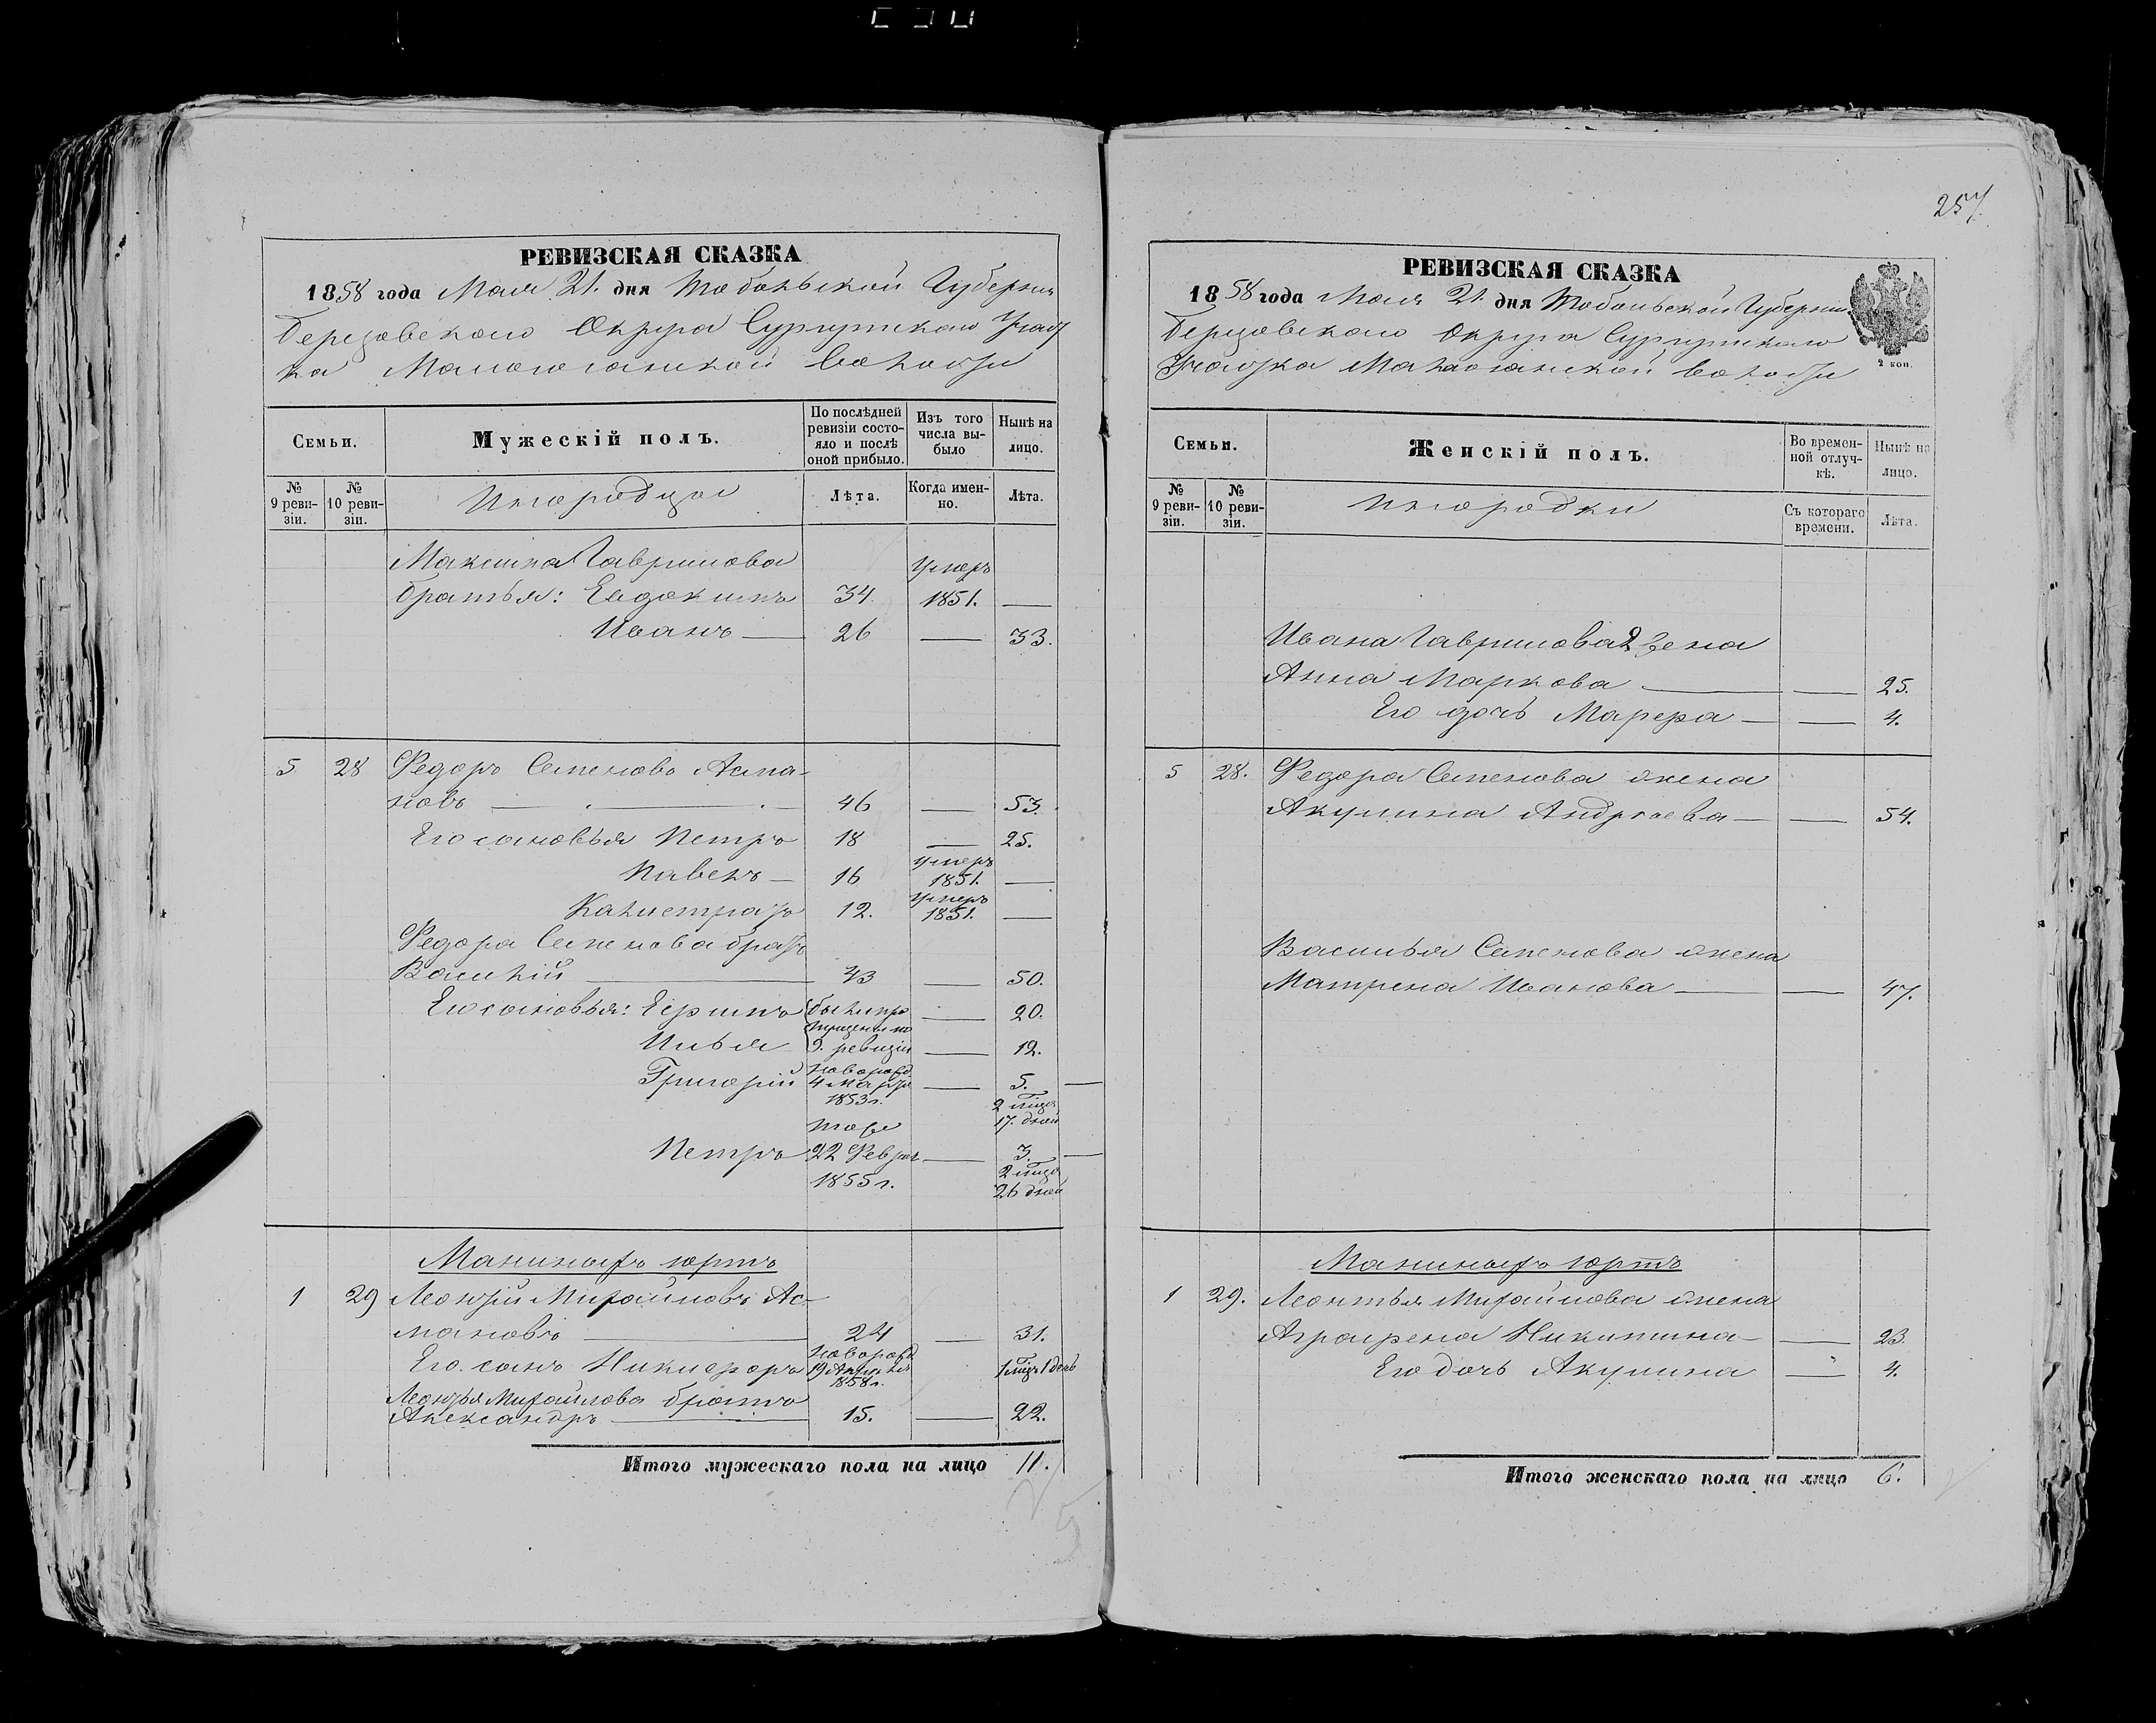 РЕВИЗСКАЯ СКАЗКА
1858 года Мая 21. дня Тобольской Губерніи
Березовскаго Округа Сургутскаго Участ
ка Малоюганской волости
Семьи.
Мужескій полъ.
По послѣдней ревизіи состо-
яло и послѣ
оной прибыло.
Изъ того
числа вы-
было
Нынѣ на
лицо.
№
9 реви-
зіи.
№
10 реви-
зіи.
Инородцы
Лѣта.
Когда имен-
но.
Лѣта.
Максима Гаврилова умеръ
братья: Евдокимъ 34 1851. —
Иванъ — 26 — 33.
5 28 Федоръ Семеновъ Асма-
новъ — 46 — 53.
Его сыновья Петръ 18 — 25.
Павелъ — 16 умеръ 1851. —
Калистратъ 12. умеръ 1851. —
Федора Семенова братъ
Василій — 43 — 50.
Его сыновья: Ефимъ были про — 20.
пущены по
Илья 9. ревизіи — 12.
новорожд
Григорій 4 Марта — 5. —
1853 г. 2 мѣся
17. дней
тоже
Петръ 22 Февра — 3. —
1855 г. 2 мѣся
26 дней
Маниныхъ юртъ
1 29 Леонтій Михайловъ Ас-
мановъ — 24 — 31.
новорожд
Его сынъ Никифоръ 19 Апрѣля 1 мѣсяцъ 1 день
1858 г.
Леонтья Михайлова братъ
Александръ — 15. — 22.
Итого мужескаго пола на лицо 11.
257
РЕВИЗСКАЯ СКАЗКА
1858 года Мая 21. дня Тобольской Губерніи
Березовскаго Округа Сургутскаго
Участка Малоюганской волости
2 коп.
Семьи.
Женскій полъ.
Во времен-
ной отлуч-
кѣ.
Нынѣ на
лицо.
№
9 реви-
зіи.
№
10 реви-
зіи.
Инородки
Съ котораго
времени.
Лѣта.
Ивана Гаврилова 2 жена
Анна Маркова — — 25.
Его дочь Марфа — — 4.
5 28. Федора Семенова жена
Акулина Андреева — — 54.
Василья Семенова жена
Матрена Иванова — — 47.
Маниныхъ юртъ
1 29. Леонтья Михайлова жена
Аграфена Никитина — — 23.
Его дочь Акулина — 4.
Итого женскаго пола на лицо 6.